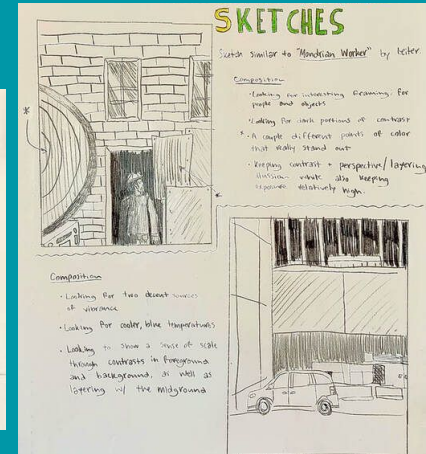 SKETCHES
Sketch similar to "Mondrian Worker" by Leiter.
Composition
• Looking for interesting framing, for
people and objects
• Looking for dark portions of contrast
* • A couple different points of color
that really stand out
• Keeping contrast + perspective/layering
illusion while also keeping
exposure relatively high.
Composition
• Looking for two decent sources
of vibrance
• Looking for cooler, blue temperatures
• Looking to show a sense of scale
through contrasts in foreground
and background, as well as
layering w/ the midground